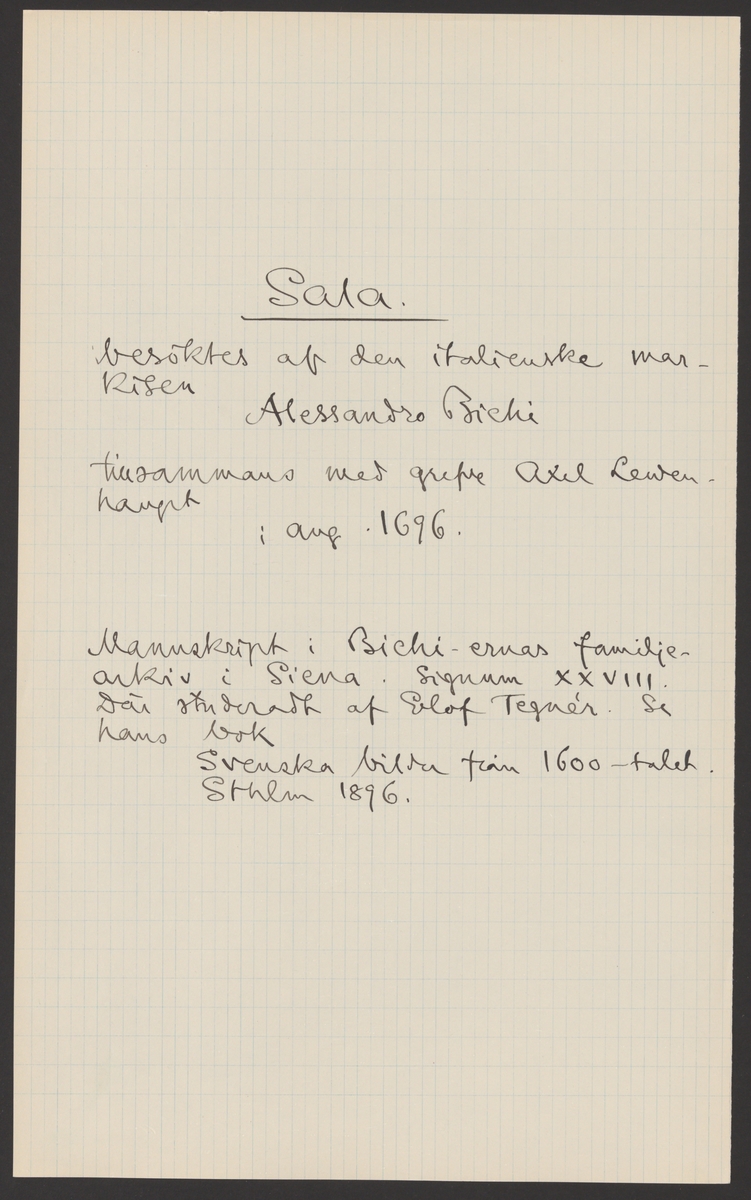 Sala.
besöktes af den italienske mar-
kisen
Alessandro Bichi
tillsammans med grefve Axel Lewen-
haupt
i aug. 1696.
Mannskript i Bichi-ernas familje-
arkiv i Siena. Signum XXVIII.
Där studeradt af Elof Tegnér. Se
hans bok
Svenska bilder från 1600-talet.
Sthlm 1896.